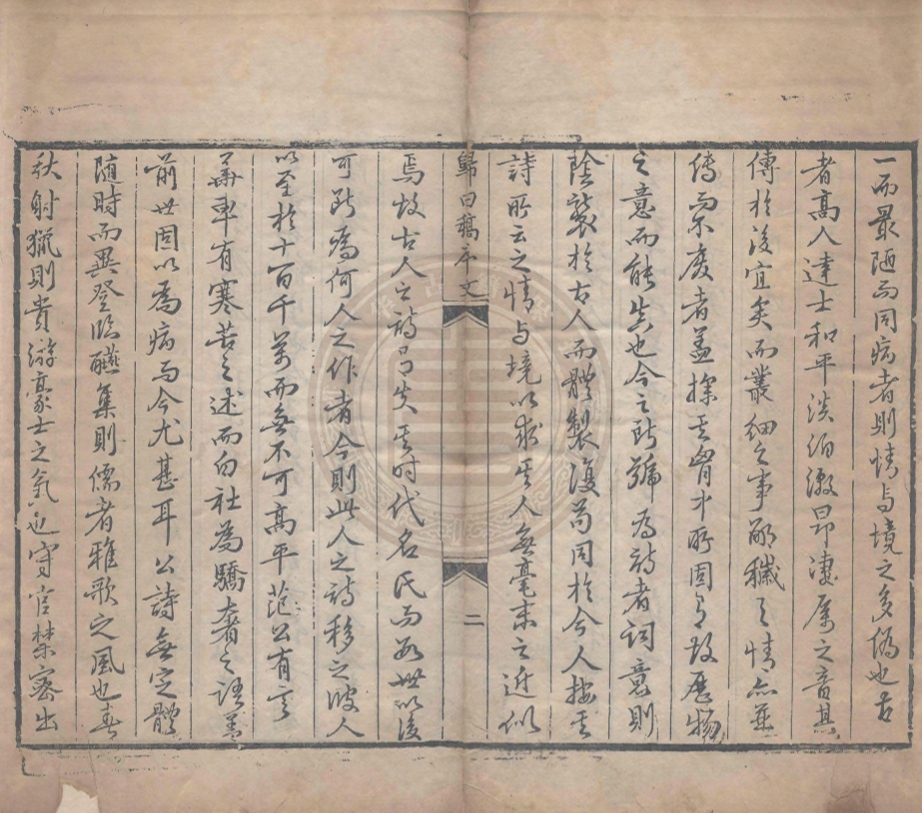 一而最陋而同病者則情与境之多偽也古
者高人達士和平淡泊激昂凄厲之音其
傳於後宜矣而叢細之事敝穢之情亦並
傳而不廢者蓋探其胷中所固有故歷
之意而能真也今之所號為詩者詞意則
陰襲於古人而體製復苟同於今人按其
詩所云之情与境以求其人無毫末之近似
歸田稿序文
二
焉故古人之詩即失其时代名氏而數世以後
可跡為何人之作者今則此人之詩移之彼人
以至於十百千萬而無不可高平范公有言
華車有寒苦之述而白社為驕奢之語
前世固以為病而今尤甚耳公詩無定體
随時而異登臨醼集則儒者雅歌之風也春
秋射獵則貴游豪士之氣也守官禁密出